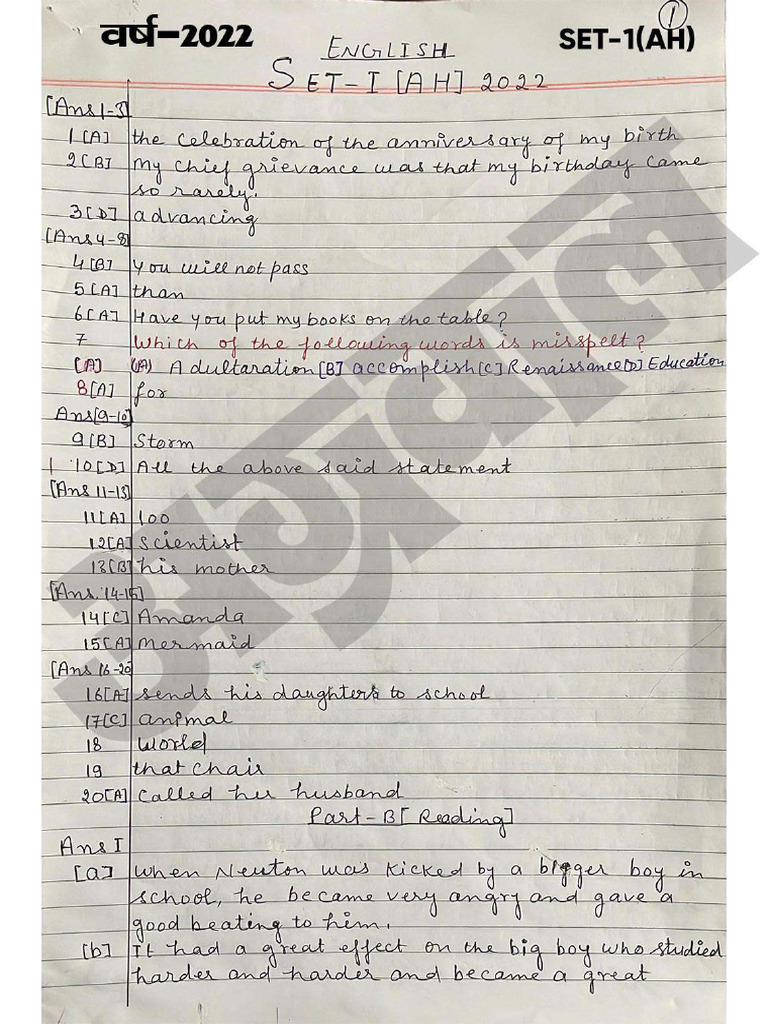 1
वर्ष-2022
ENGLISH
SET-1(AH)
SET-I [AH] 2022
[Ans 1-3]
1 [A] the celebration of the anniversary of my birth
2 [B] My chief grievance was that my birthday came
so rarely.
3 [D] advancing
[Ans 4-8]
4 [B] You will not pass
5 [A] than
6 [A] Have you put my books on the table?
7 Which of the following words is misspelt?
[A] (A) Adultaration [B] accomplish [C] Renaissance [D] Education
8 [A] for
Ans [9-10]
9 [B] Storm
10 [D] All the above said statement
[Ans 11-13]
11 [A] 100
12 [A] Scientist
13 [B] his mother
[Ans. 14-15]
14 [C] Amanda
15 [A] Mermaid
[Ans 16-20
16 [A] sends his daughters to school
17 [C] animal
18 World
19 that chair
20 [A] called her husband
Part-B [Reading]
Ans I
[a] When Newton was kicked by a bigger boy in
school, he became very angry and gave a
good beating to him.
[b] It had a great effect on the big boy who studied
harder and harder and became a great
अग्रवाल